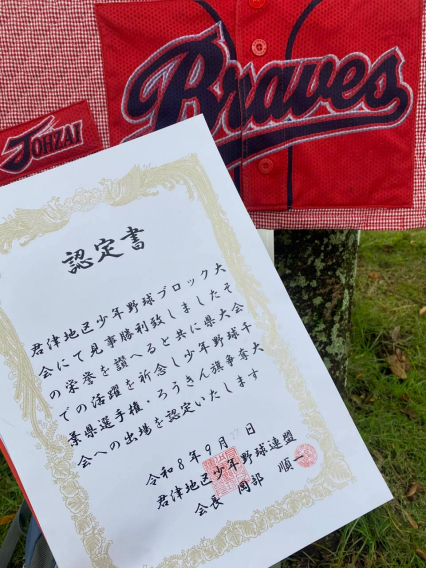 Braves
JOHZAI
認定書
君津地区少年野球ブロック大
会にて見事勝利致しましたそ
の栄誉を讃へると共に県大会
での活躍を祈念し少年野球千
葉県選手権・ろうきん旗争奪大
会への出場を認定いたします
令和8年9月 日
君津地区少年野球連盟
会長 岡部 順一